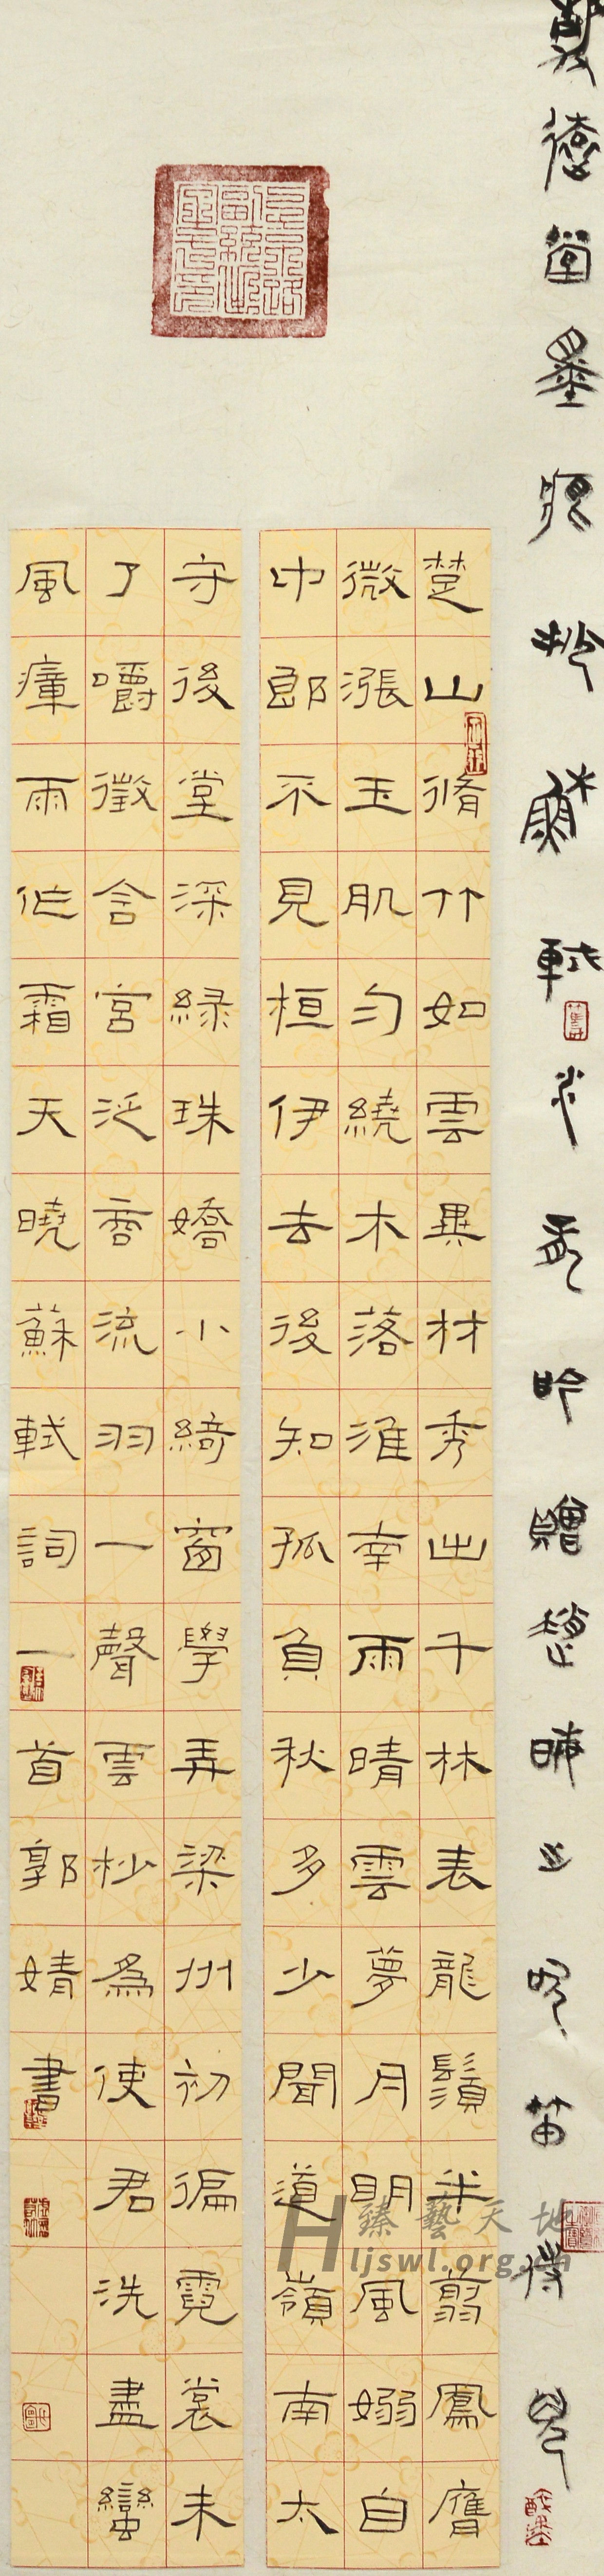 德堂墨蘇軾水龍吟贈趙晦之吹笛侍兒
楚山脩竹如雲異材秀出千林表龍鬚半翦鳳膺
微漲玉肌勻繞木落淮南雨晴雲夢月明風嫋自
中郎不見桓伊去後知孤負秋多少聞道嶺南太
守後堂深緑珠嬌小綺窗學弄梁州初徧霓裳未
了嚼徵含宮泛香流羽一聲雲杪為使君洗盡蠻
風瘴雨作霜天曉蘇軾詞一首郭婧書
臻藝天地
Hljswl.org.cn